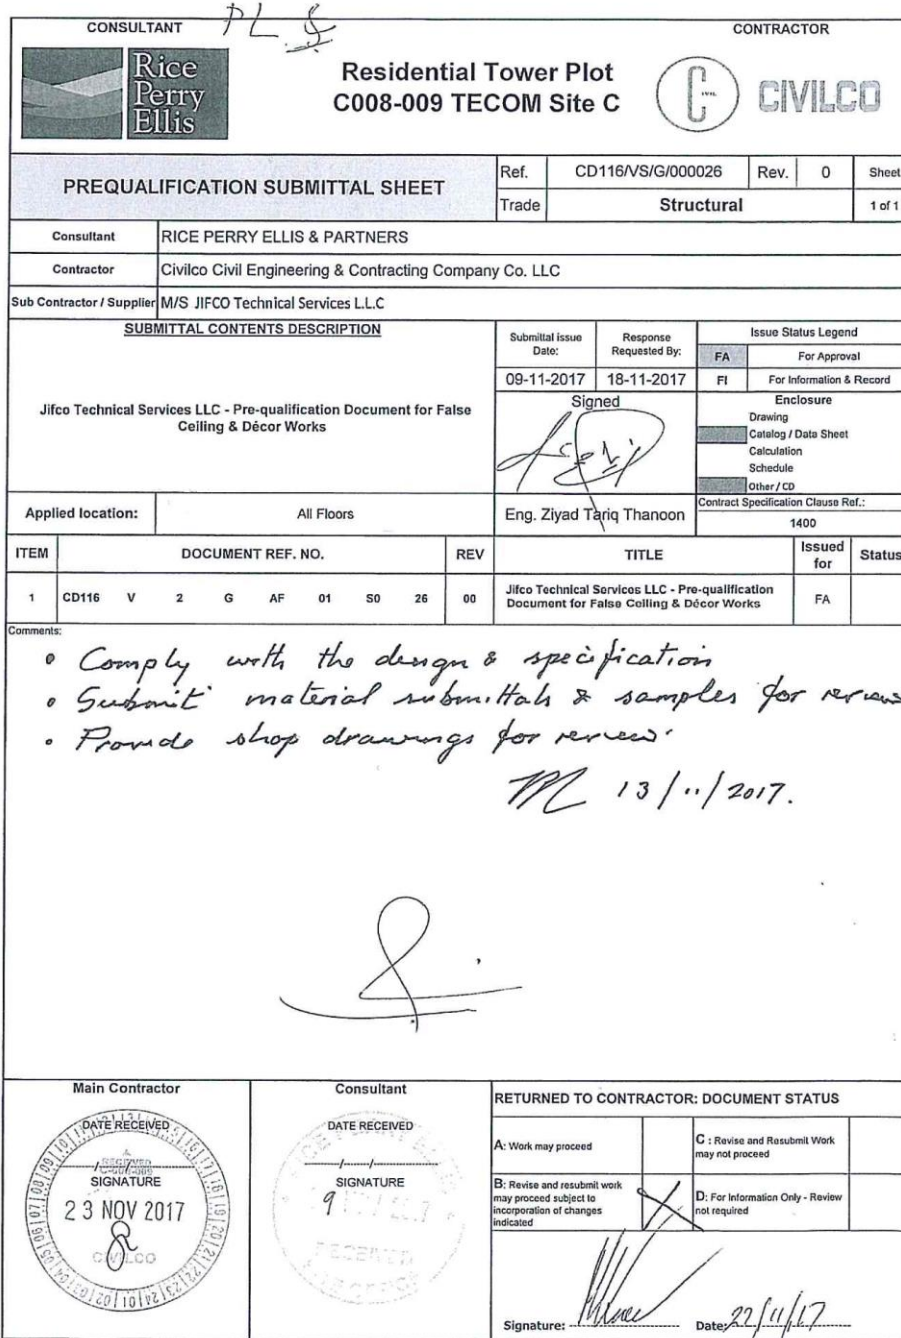 CONSULTANT
PL
CONTRACTOR
Rice
Perry
Ellis
Residential Tower Plot
C008-009 TECOM Site C
C
CIVIL
CIVILCO
PREQUALIFICATION SUBMITTAL SHEET
Ref. CD116/VS/G/000026 Rev. 0 Sheet
Trade Structural 1 of 1
Consultant RICE PERRY ELLIS & PARTNERS
Contractor Civilco Civil Engineering & Contracting Company Co. LLC
Sub Contractor / Supplier M/S JIFCO Technical Services L.L.C
SUBMITTAL CONTENTS DESCRIPTION
Jifco Technical Services LLC - Pre-qualification Document for False
Ceiling & Décor Works
Submittal issue
Date:
Response
Requested By:
09-11-2017 18-11-2017
Issue Status Legend
FA For Approval
FI For Information & Record
Signed
Eng. Ziyad Tariq Thanoon
Enclosure
Drawing
Catalog / Data Sheet
Calculation
Schedule
Other / CD
Contract Specification Clause Ref.:
1400
Applied location: All Floors
ITEM DOCUMENT REF. NO. REV TITLE Issued for Status
1 CD116 V 2 G AF 01 S0 26 00 Jifco Technical Services LLC - Pre-qualification
Document for False Ceiling & Décor Works FA
Comments:
• Comply with the design & specification
• Submit material submittals & samples for review
• Provide shop drawings for review.
13/11/2017.
Main Contractor
DATE RECEIVED
RECEIVED
SIGNATURE
23 NOV 2017
CIVILCO
Consultant
DATE RECEIVED
SIGNATURE
9
RECEIVED
RETURNED TO CONTRACTOR: DOCUMENT STATUS
A: Work may proceed
C : Revise and Resubmit Work
may not proceed
B: Revise and resubmit work
may proceed subject to
incorporation of changes
indicated
D: For Information Only - Review
not required
Signature:
Date: 22/11/17